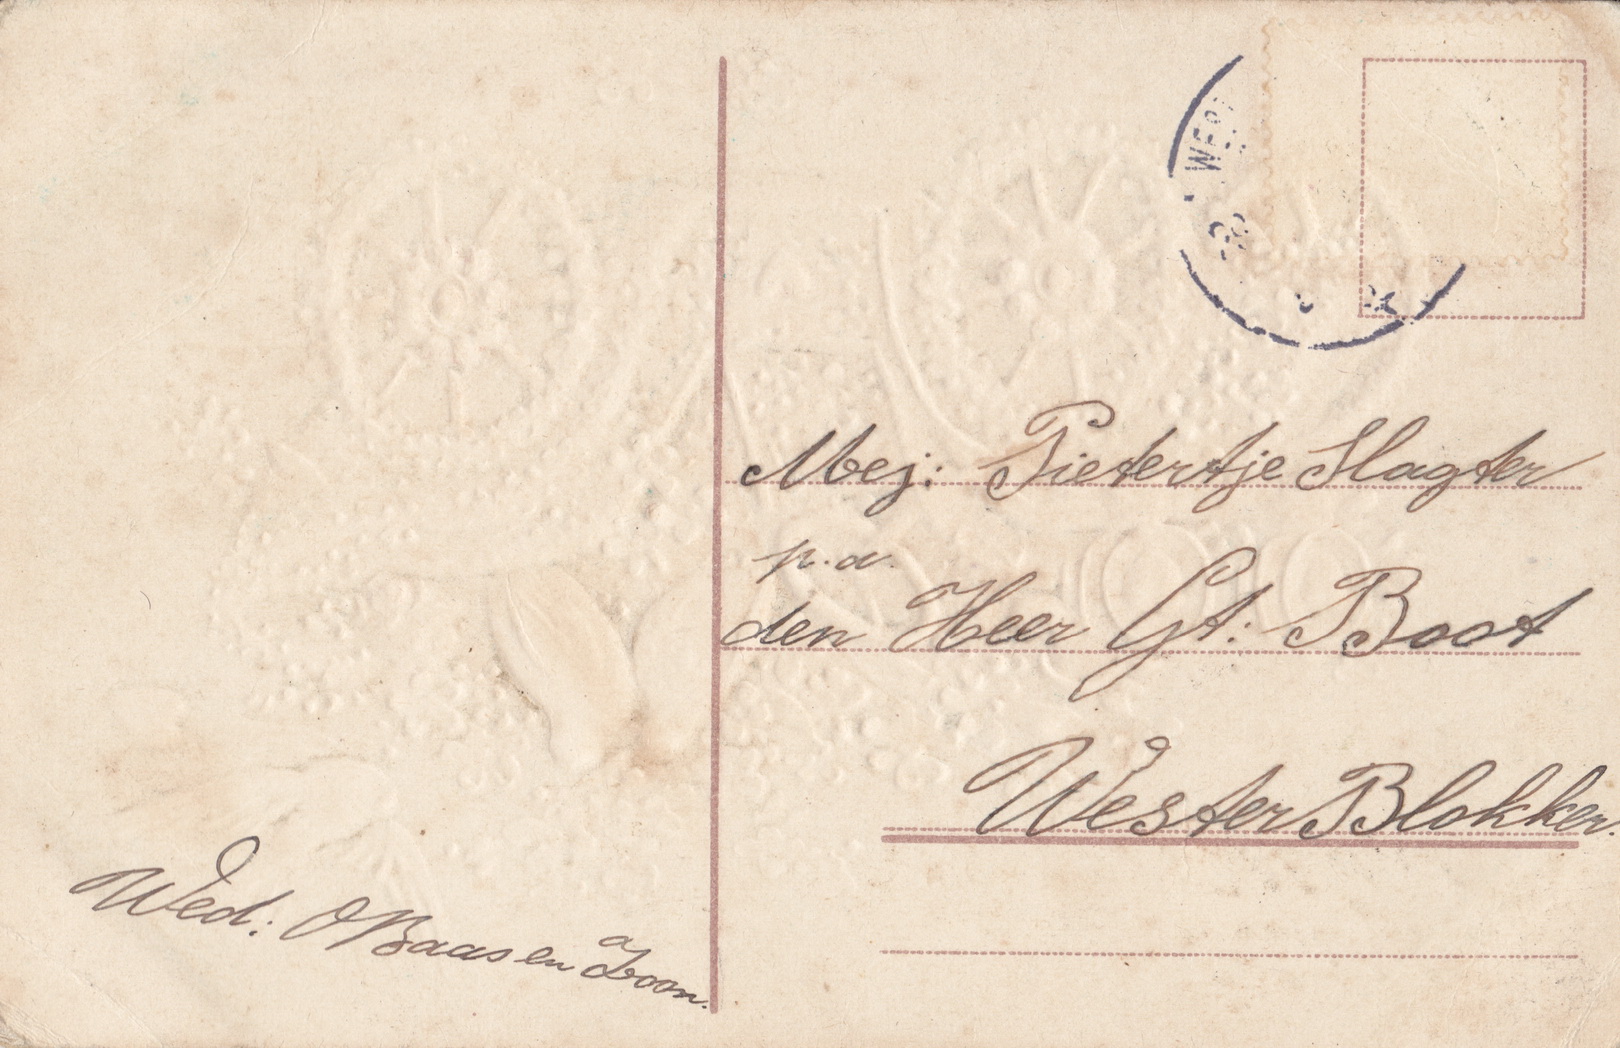 WEST
Mej: Pietertje Slagter
p. a.
den Heer Gt: Boot
Wester Blokker.
Wed: O Baas en Zoon.